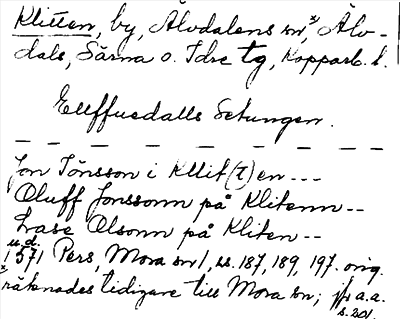 Klitten, by, Älvdalens sn,x Älv-
dals, Särna o. Idre tg, Kopparb. l.
Ellffuedalls Setungen.
— — — — — — — — —
Jon Jönsson i Kllit(t)en ---
Oluff Jonssonn på Klitenn --
Lasse Olsonn på Kliten --
u.d.
1571 Pers, Mora sn 1, ss. 187, 189, 197. orig.
x räknades tidigare till Mora sn; jfr a.a.
s. 201.